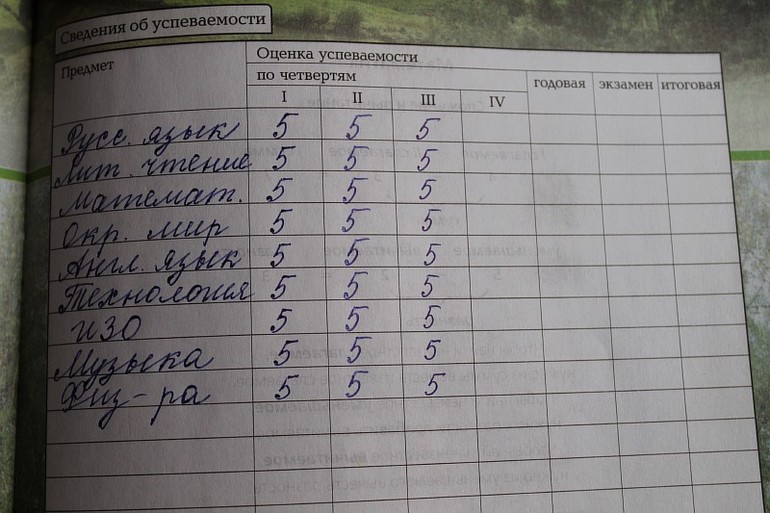 Сведения об успеваемости
Предмет
Оценка успеваемости
по четвертям
годовая экзамен итоговая
I II III IV
Русс. язык 5 5 5
Лит. чтение 5 5 5
Математ. 5 5 5
Окр. мир 5 5 5
Англ. язык 5 5 5
Технология 5 5 5
ИЗО 5 5 5
Музыка 5 5 5
Физ-ра 5 5 5